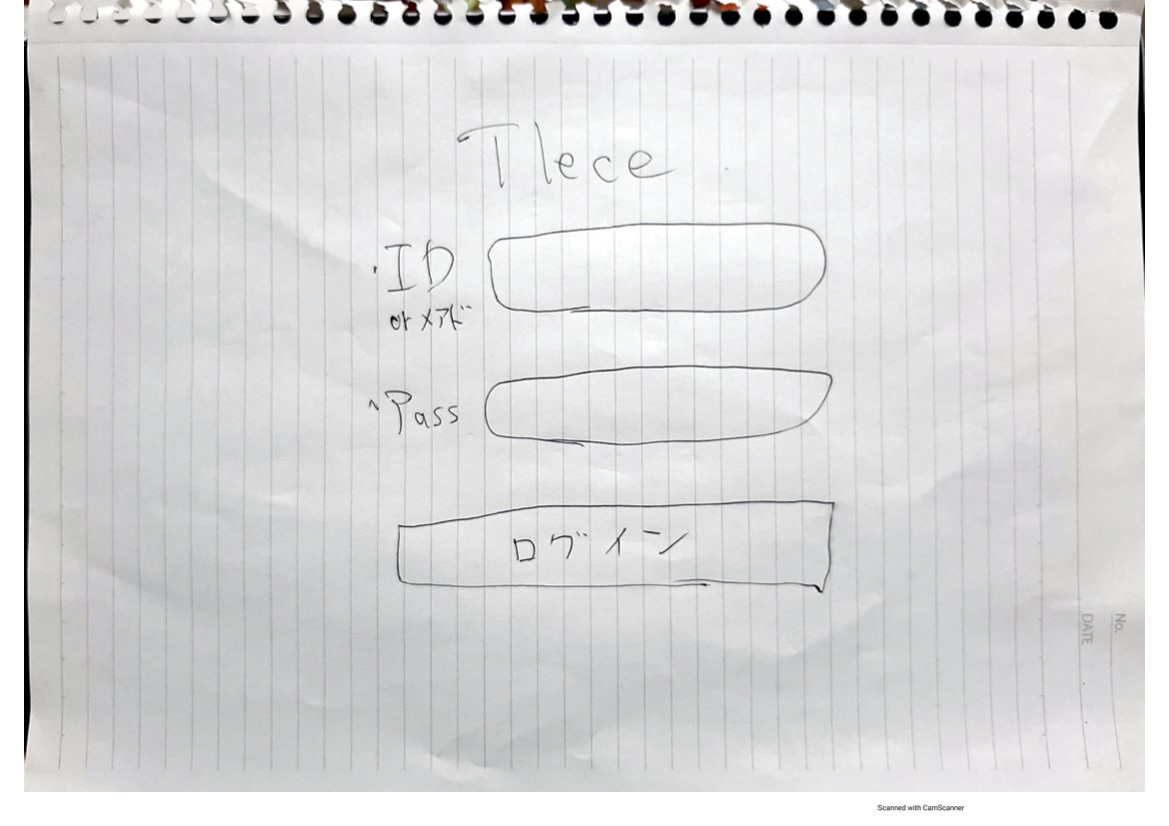 Tlece
・ID
or メアド
・Pass
ログイン
No.
DATE
Scanned with CamScanner